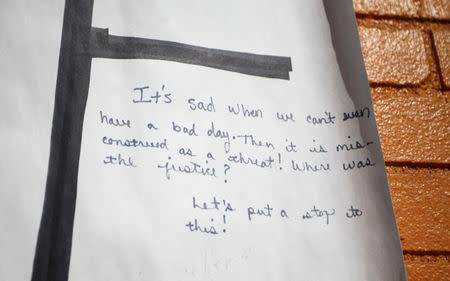 It's sad when we can't even
have a bad day. Then it is mis-
construed as a threat! Where was
the justice?
Let's put a stop to
this!